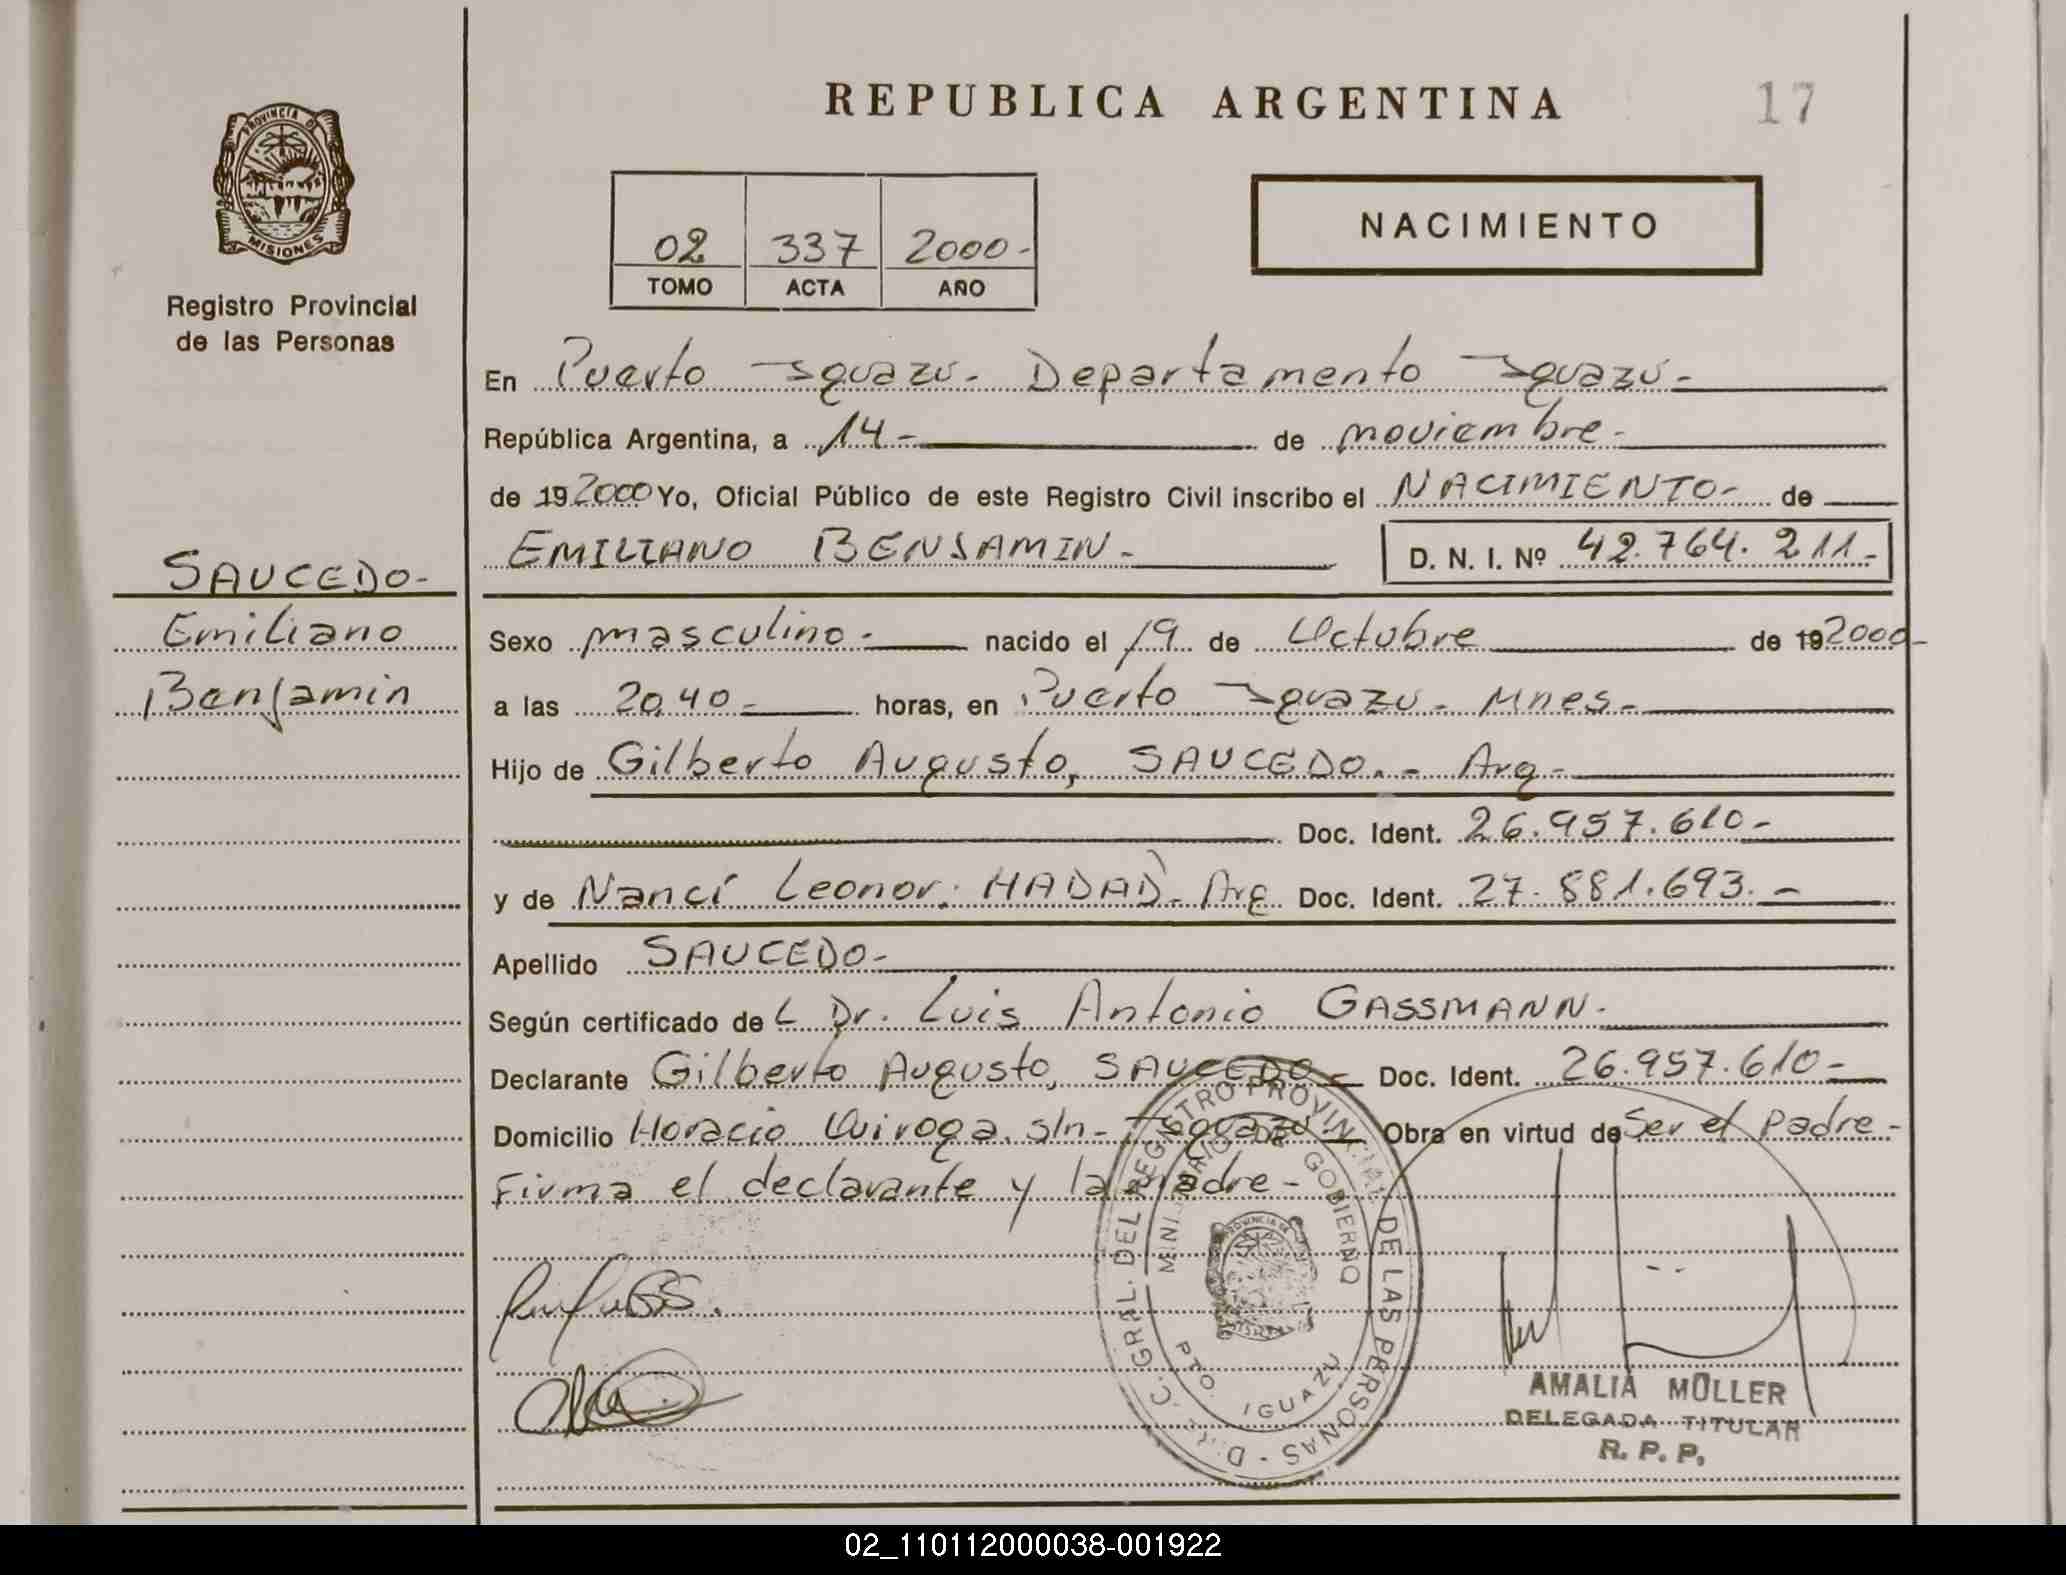 REPUBLICA ARGENTINA
17
PROVINCIA DE
MISIONES
Registro Provincial
de las Personas
02 337 2000-
TOMO ACTA AÑO
NACIMIENTO
En Puerto Iguazú. Departamento Iguazú-
República Argentina, a 14- de noviembre-
de 192000 Yo, Oficial Público de este Registro Civil inscribo el NACIMIENTO- de
EMILIANO BENJAMIN-
D. N. I. Nº 42.764.211-
SAUCEDO-
Emiliano
Benjamin
Sexo masculino- nacido el 19 de Octubre de 192000-
a las 20,40- horas, en Puerto Iguazu- Mnes-
Hijo de Gilberto Augusto, SAUCEDO.- Arg-
Doc. Ident. 26.957.610-
y de Nancí Leonor, HADAD- Arg Doc. Ident. 27.881.693.-
Apellido SAUCEDO-
Según certificado de L Dr. Luis Antonio GASSMANN-
Declarante Gilberto Augusto, SAUCEDO- Doc. Ident. 26.957.610-
Domicilio Horacio Quiroga s/n- Iguazú- Obra en virtud de Ser el padre-
Firma el declarante y la madre-
D.R.C. GRAL. DEL REGISTRO PROVINCIAL DE LAS PERSONAS
MINISTERIO DE GOBIERNO
PTO. IGUAZU
AMALIA MÜLLER
DELEGADA TITULAR
R. P. P.
02_110112000038-001922